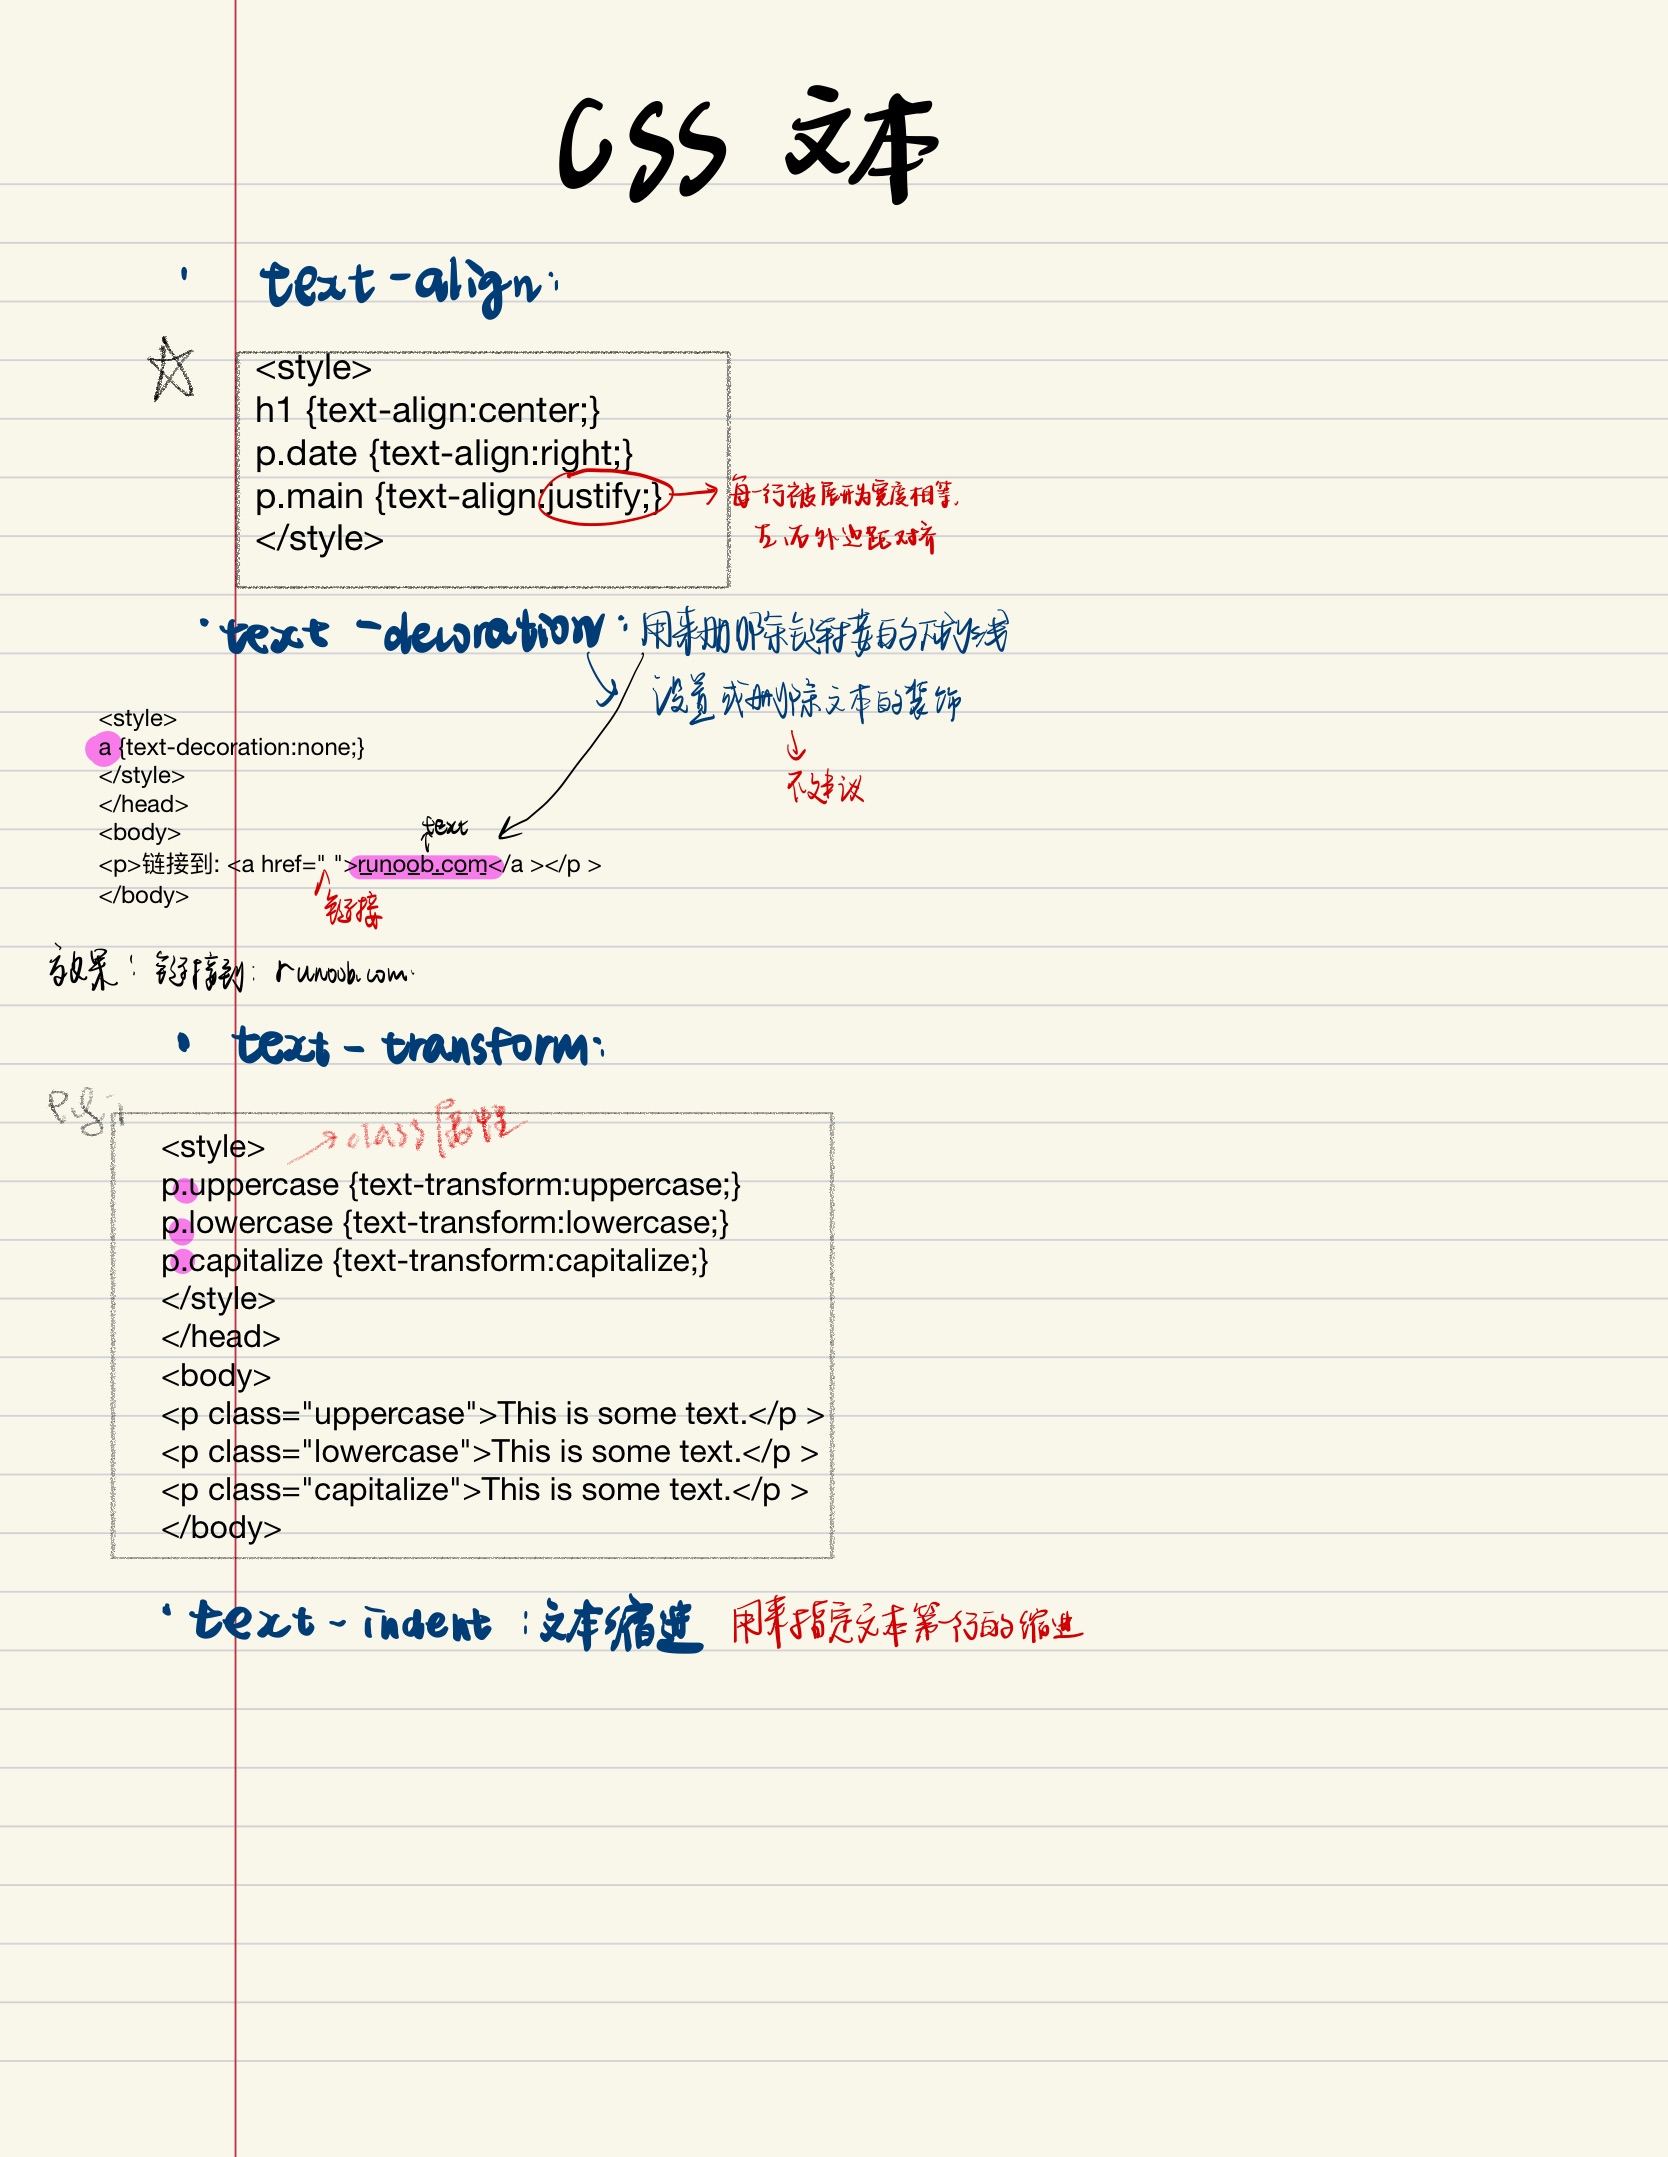 CSS 文本
· text-align:
<style>
h1 {text-align:center;}
p.date {text-align:right;}
p.main {text-align:justify;}
每一行被展开为宽度相等,
左,右外边距对齐
</style>
· text-decoration: 用来删除链接的下划线
设置或删除文本的装饰
不建议
<style>
a {text-decoration:none;}
</style>
</head>
<body>
text
<p>链接到: <a href=" ">runoob.com</a ></p >
链接
</body>
效果: 链接到: runoob.com
· text-transform:
e.g:
class属性
<style>
p.uppercase {text-transform:uppercase;}
p.lowercase {text-transform:lowercase;}
p.capitalize {text-transform:capitalize;}
</style>
</head>
<body>
<p class="uppercase">This is some text.</p >
<p class="lowercase">This is some text.</p >
<p class="capitalize">This is some text.</p >
</body>
· text-indent :文本缩进 用来指定文本第一行的缩进